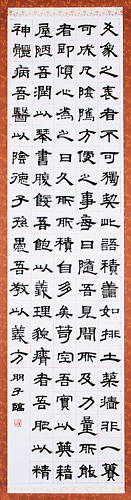 之志者不可獨契此語積善如挑土築牆非一簣
可成凡陰隲方便之事每日隨吾見聞所及力量所能
者即傾心為之日久所積自多矣吾實以籍
屋陋吾潤以琴書腹餒吾飽以義理貌癯者吾肥以精
神體病吾醫以陰德子孫愚吾教以義方 朋子臨